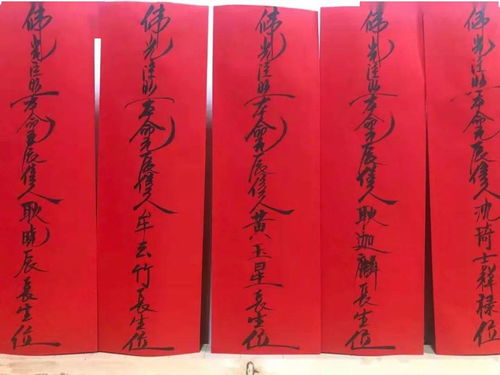 佛光注照本命元辰信人沈琦士祿位
佛光注照本命元辰信人耿迦麟長生位
佛光注照本命元辰信人黄玉星長生位
佛光注照本命元辰信人牟云竹長生位
佛光注照本命元辰信人耿晓辰長生位